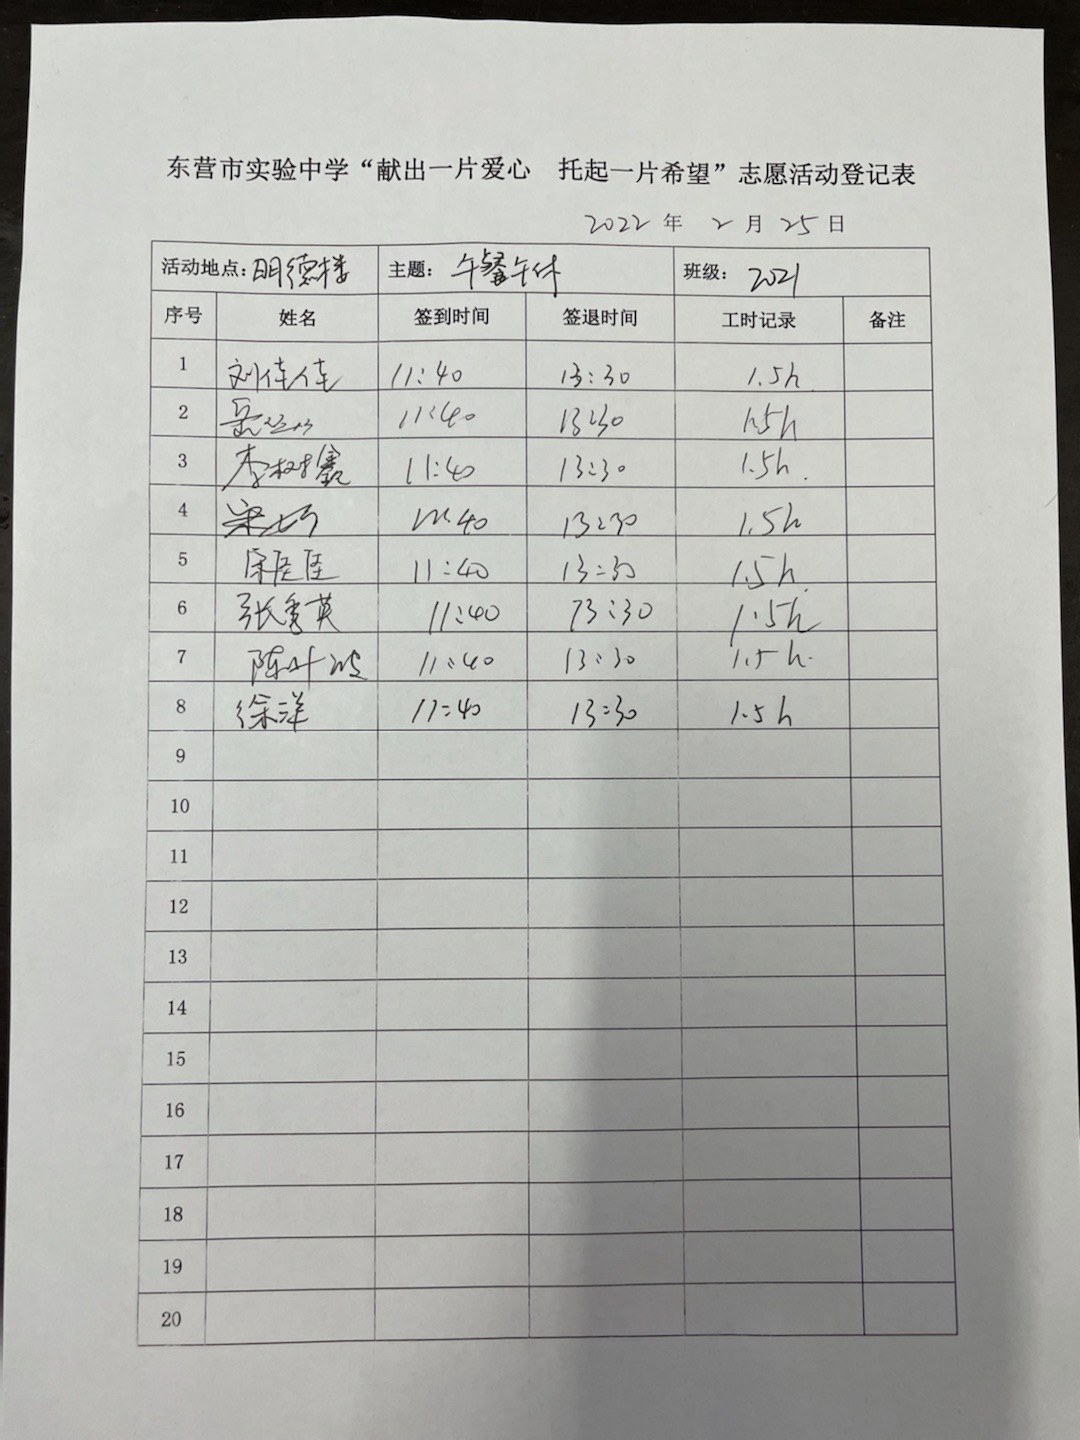 东营市实验中学“献出一片爱心 托起一片希望”志愿活动登记表
2022 年 2 月 25 日
活动地点：明德楼 主题：午餐午休 班级：2021
序号 姓名 签到时间 签退时间 工时记录 备注
1 刘佳佳 11:40 13:30 1.5h
2 11:40 13:30 1.5h
3 李树鑫 11:40 13:30 1.5h.
4 11:40 13:30 1.5h
5 11:40 13:30 1.5h.
6 张秀英 11:40 13:30 1.5h
7 陈叶波 11:40 13:30 1.5h.
8 徐洋 11:40 13:30 1.5h
9
10
11
12
13
14
15
16
17
18
19
20